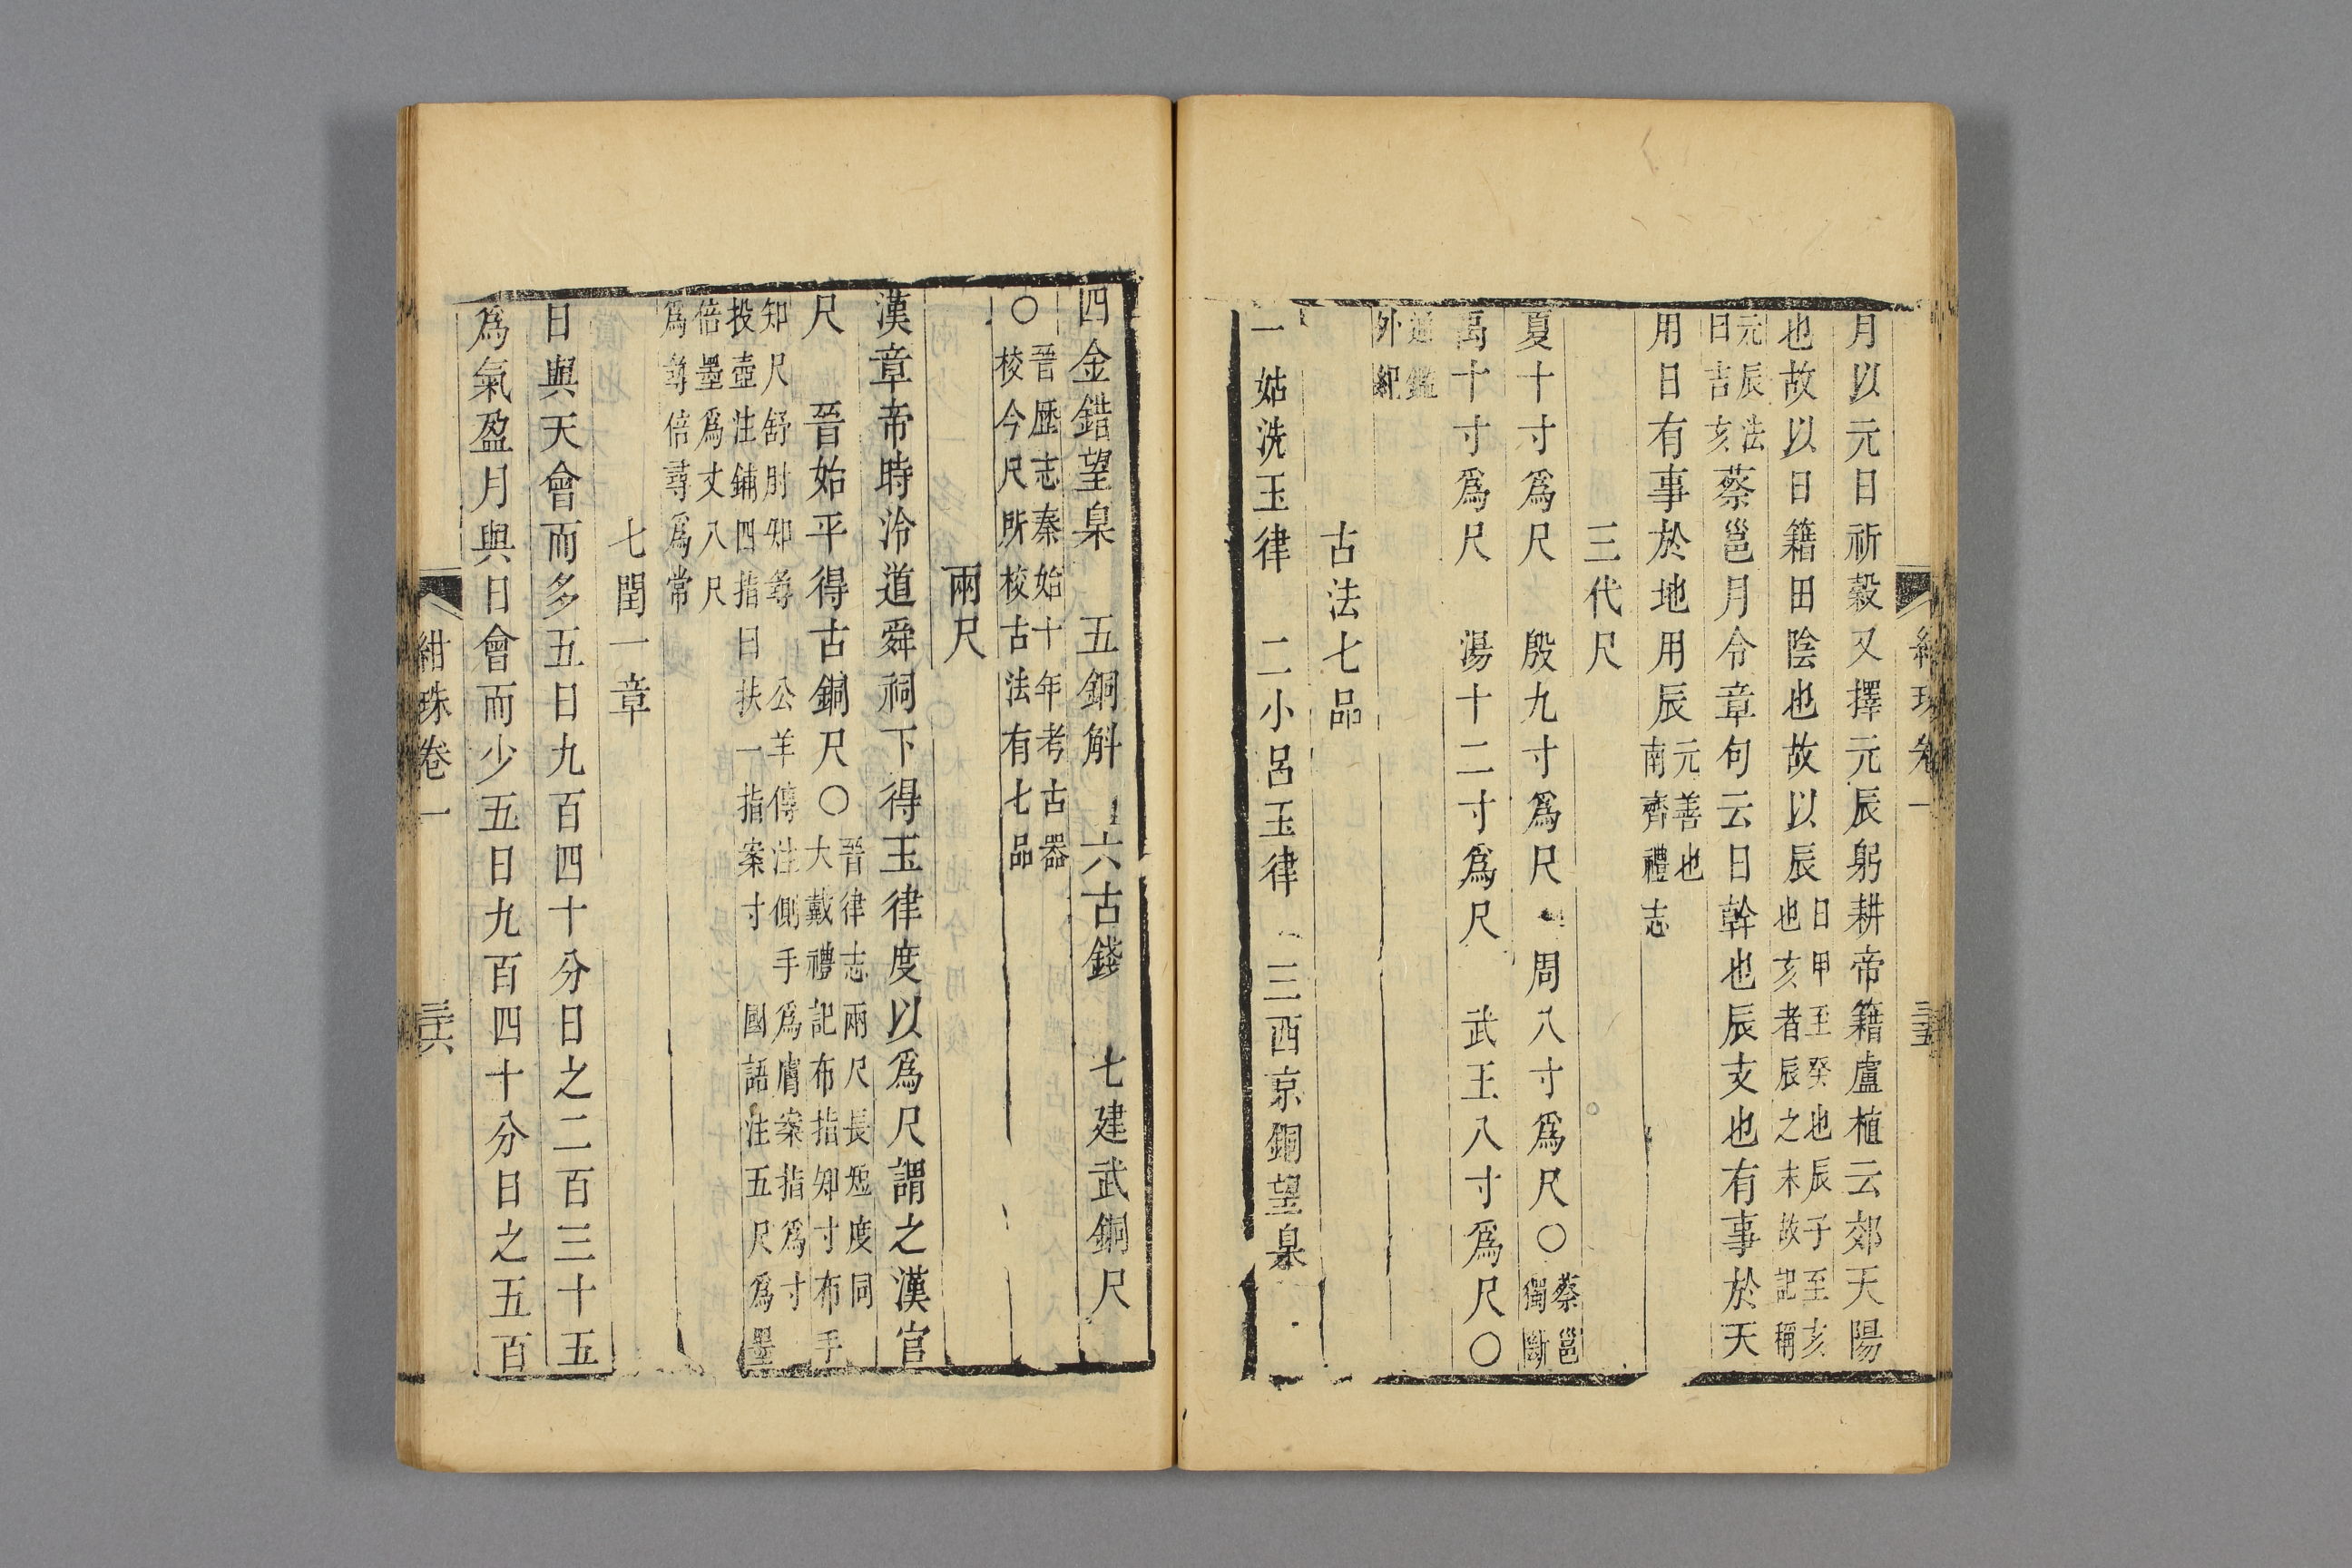 紺珠卷一
三十五
月以元日祈穀又擇元辰躬耕帝籍盧植云郊天陽
也故以日籍田陰也故以辰日甲至癸也辰子至亥
也亥者辰之末故記稱
元辰法
曰吉亥蔡邕月令章句云日幹也辰支也有事於天
用日有事於地用辰元善也
南齊禮志
三代尺
夏十寸爲尺　殷九寸爲尺　周八寸爲尺○蔡邕
獨斷
禹十寸爲尺　湯十二寸爲尺　武王八寸爲尺○
通鑑
外紀
古法七品
一姑洗玉律　二小呂玉律　三西京銅望臬
四金錯望臬　五銅斛　六古錢　七建武銅尺
○晉歷志泰始十年考古器
校今尺所校古法有七品
兩尺
漢章帝時泠道舜祠下得玉律度以爲尺謂之漢官
尺　晉始平得古銅尺○晉律志兩尺長短度同
大戴禮記布指知寸布手
知尺舒肘知尋　公羊傳注側手爲膚案指爲寸
投壺注鋪四指曰扶一指案寸　國語注五尺爲墨
倍墨爲丈八尺
爲尋倍尋爲常
七閏一章
日與天會而多五日九百四十分日之二百三十五
爲氣盈月與日會而少五日九百四十分日之五百
紺珠卷一
三十六